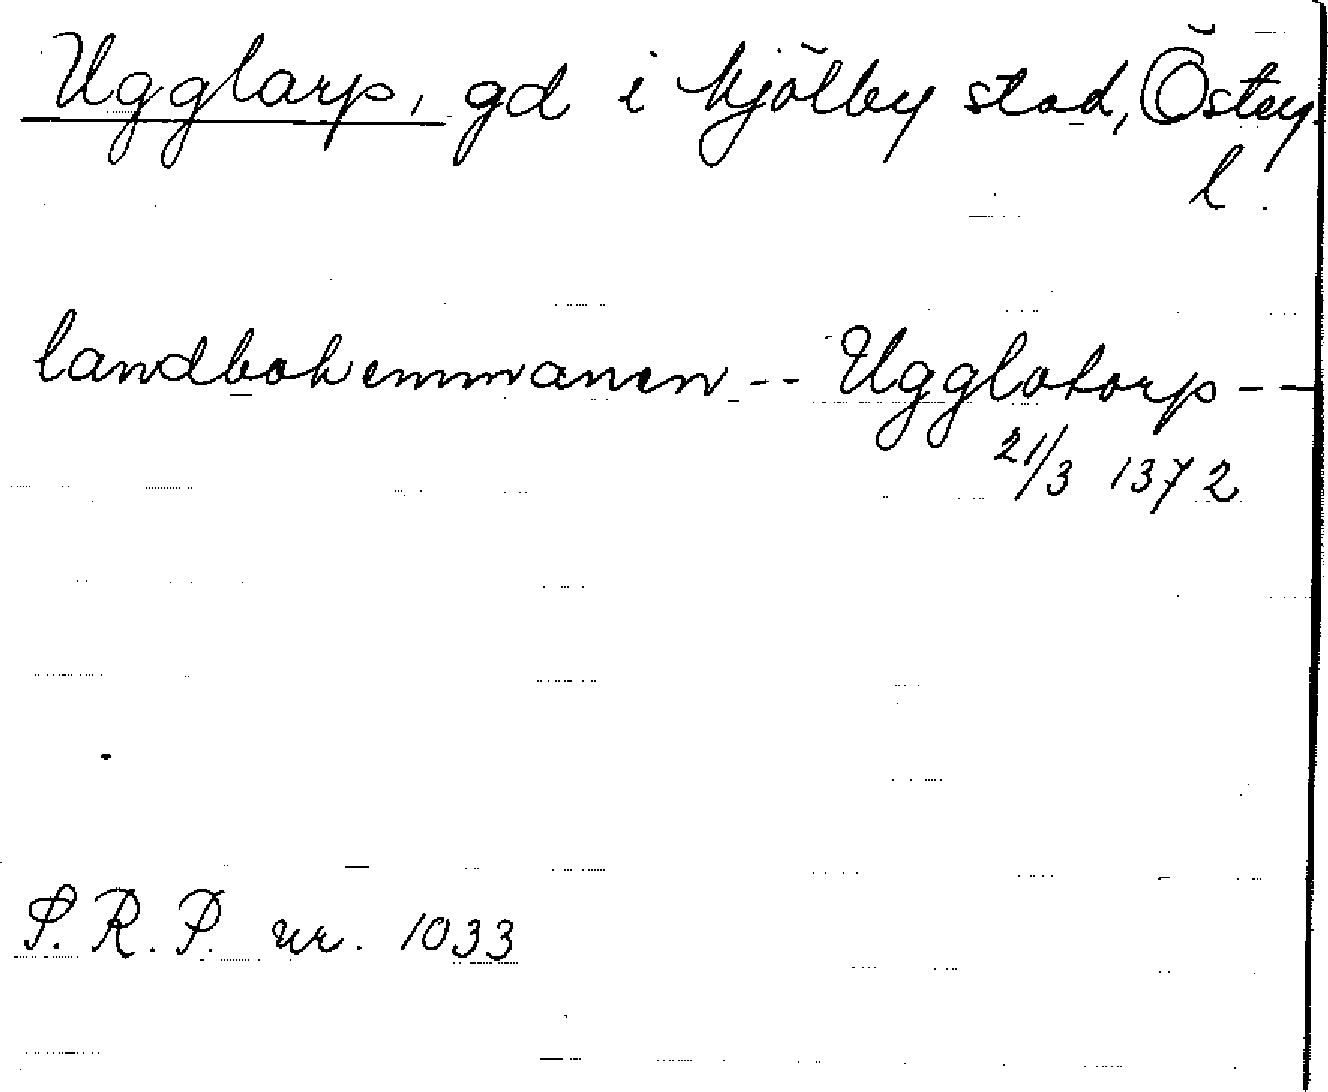 Ugglarp, gd i Mjölby stad, Östery.
l.
landbohemmanen -- Ugglotorp --
21/3 1372
S. R. P. nr. 1033